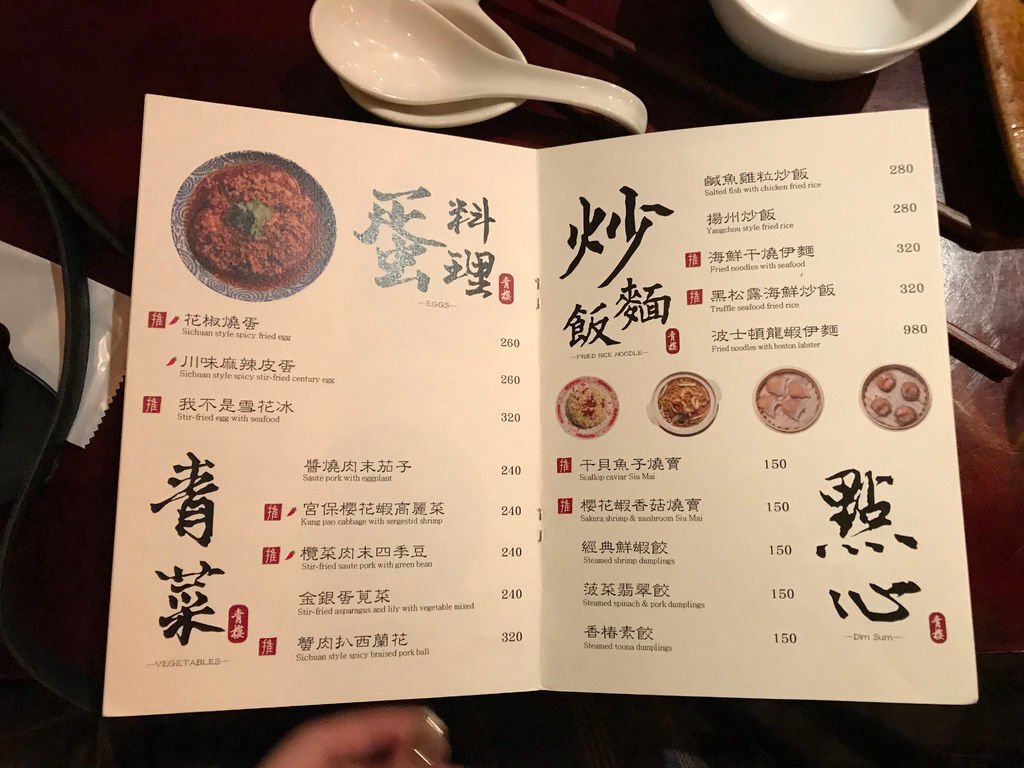 蛋
料理
青樓
—EGGS—
推 花椒燒蛋
Sichuan style spicy fried egg
260
川味麻辣皮蛋
Sichuan style spicy stir-fried century egg
260
推 我不是雪花冰
Stir-fried egg with seafood
320
青菜
青樓
—VEGETABLES—
醬燒肉末茄子
Saute pork with eggplant
240
推 宮保櫻花蝦高麗菜
Kung pao cabbage with sergestid shrimp
240
推 欖菜肉末四季豆
Stir-fried saute pork with green bean
240
金銀蛋莧菜
Stir-fried asparagus and lily with vegetable mixed
240
推 蟹肉扒西蘭花
Sichuan style spicy braised pork ball
320
炒
飯麵
青樓
—FRIED RICE NOODLE—
鹹魚雞粒炒飯
Salted fish with chicken fried rice
280
揚州炒飯
Yangchou style fried rice
280
推 海鮮干燒伊麵
Fried noodles with seafood
320
推 黑松露海鮮炒飯
Truffle seafood fried rice
320
波士頓龍蝦伊麵
Fried noodles with boston labster
980
推 干貝魚子燒賣
Scallop caviar Siu Mai
150
推 櫻花蝦香菇燒賣
Sakura shrimp & mushroom Siu Mai
150
經典鮮蝦餃
Steamed shrimp dumplings
150
菠菜翡翠餃
Steamed spinach & pork dumplings
150
香椿素餃
Steamed toona dumplings
150
點心
青樓
—Dim Sum—